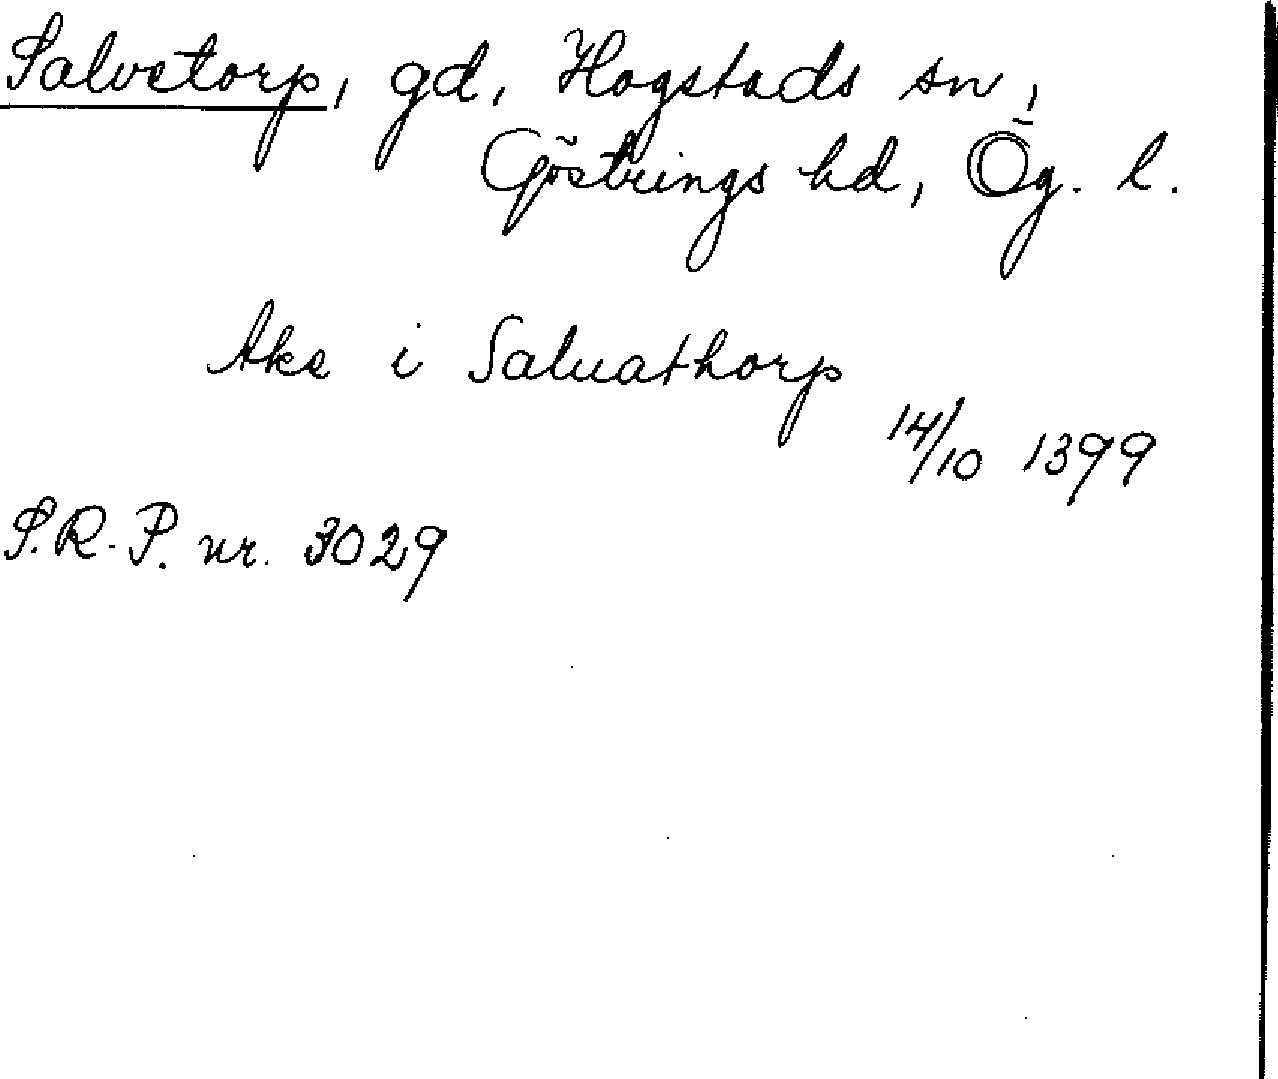 Salvetorp, gd, Hogstads sn,
Göstrings hd, Ög. l.
Ake i Saluathorp
14/10 1399
S.R.P. nr. 3029